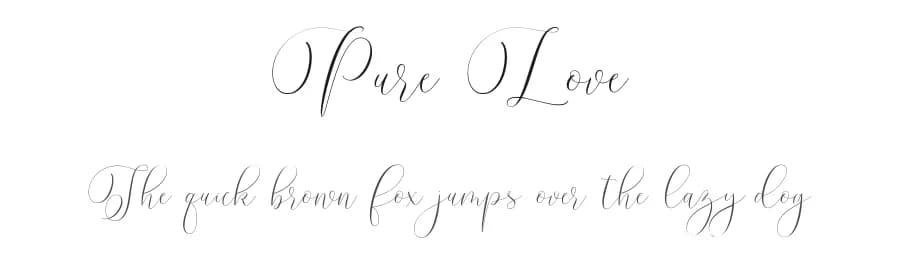 Pure Love
The quick brown fox jumps over the lazy dog